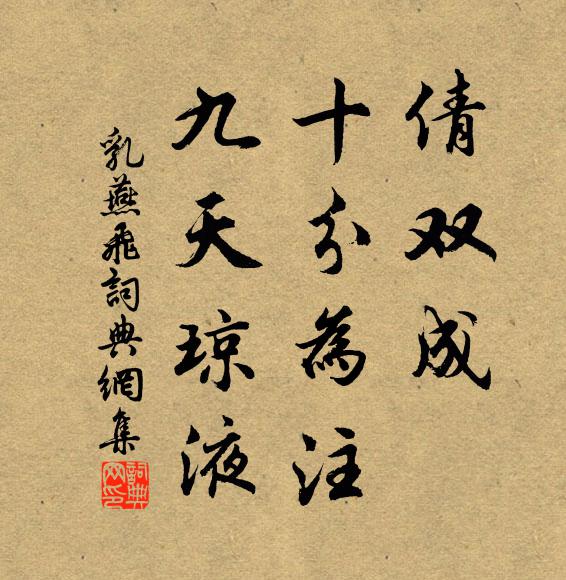 倩双成
十分為注
九天琼液
乳燕飛詞典網集
詞典
网印